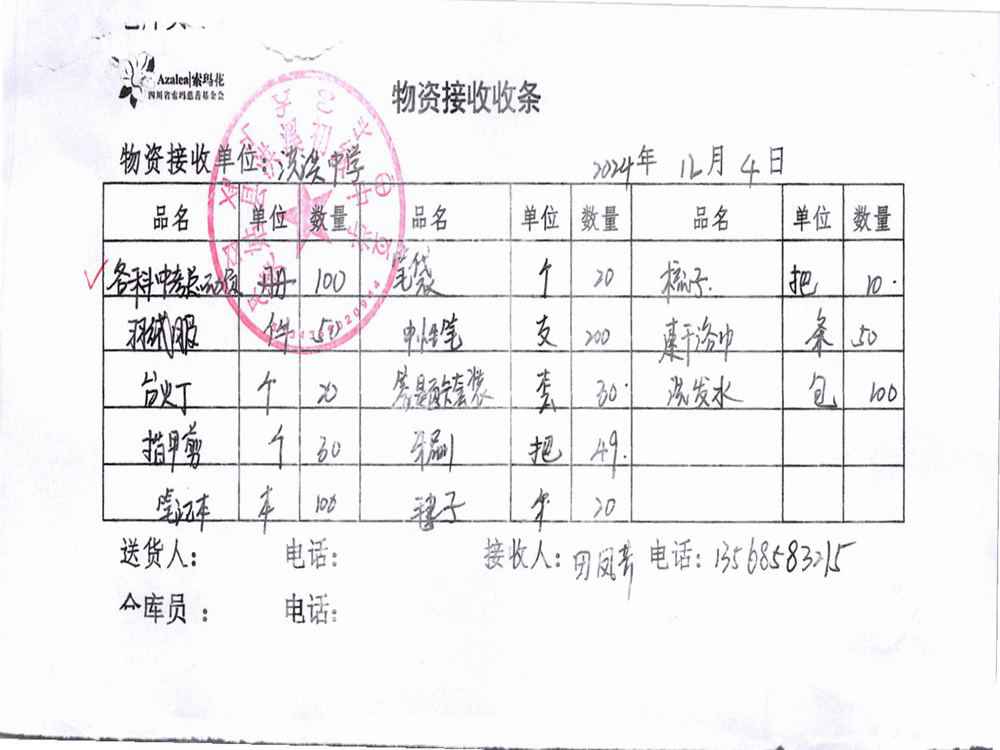 Azalea|索玛花
四川省索玛慈善基金会
物资接收收条
物资接收单位: 洪溪中学
2024年 12月 4日
品名 单位 数量 品名 单位 数量 品名 单位 数量
各科中考 册 100 笔袋 个 20 梳子 把 10
羽绒服 件 50 中性笔 支 200 干浴巾 条 50
台灯 个 20 套装 套 30 洗发水 包 100
指甲剪 个 30 牙刷 把 49
笔记本 本 100 毽子 个 20
送货人: 电话: 接收人: 田凤 电话: 13568583215
仓库员: 电话: